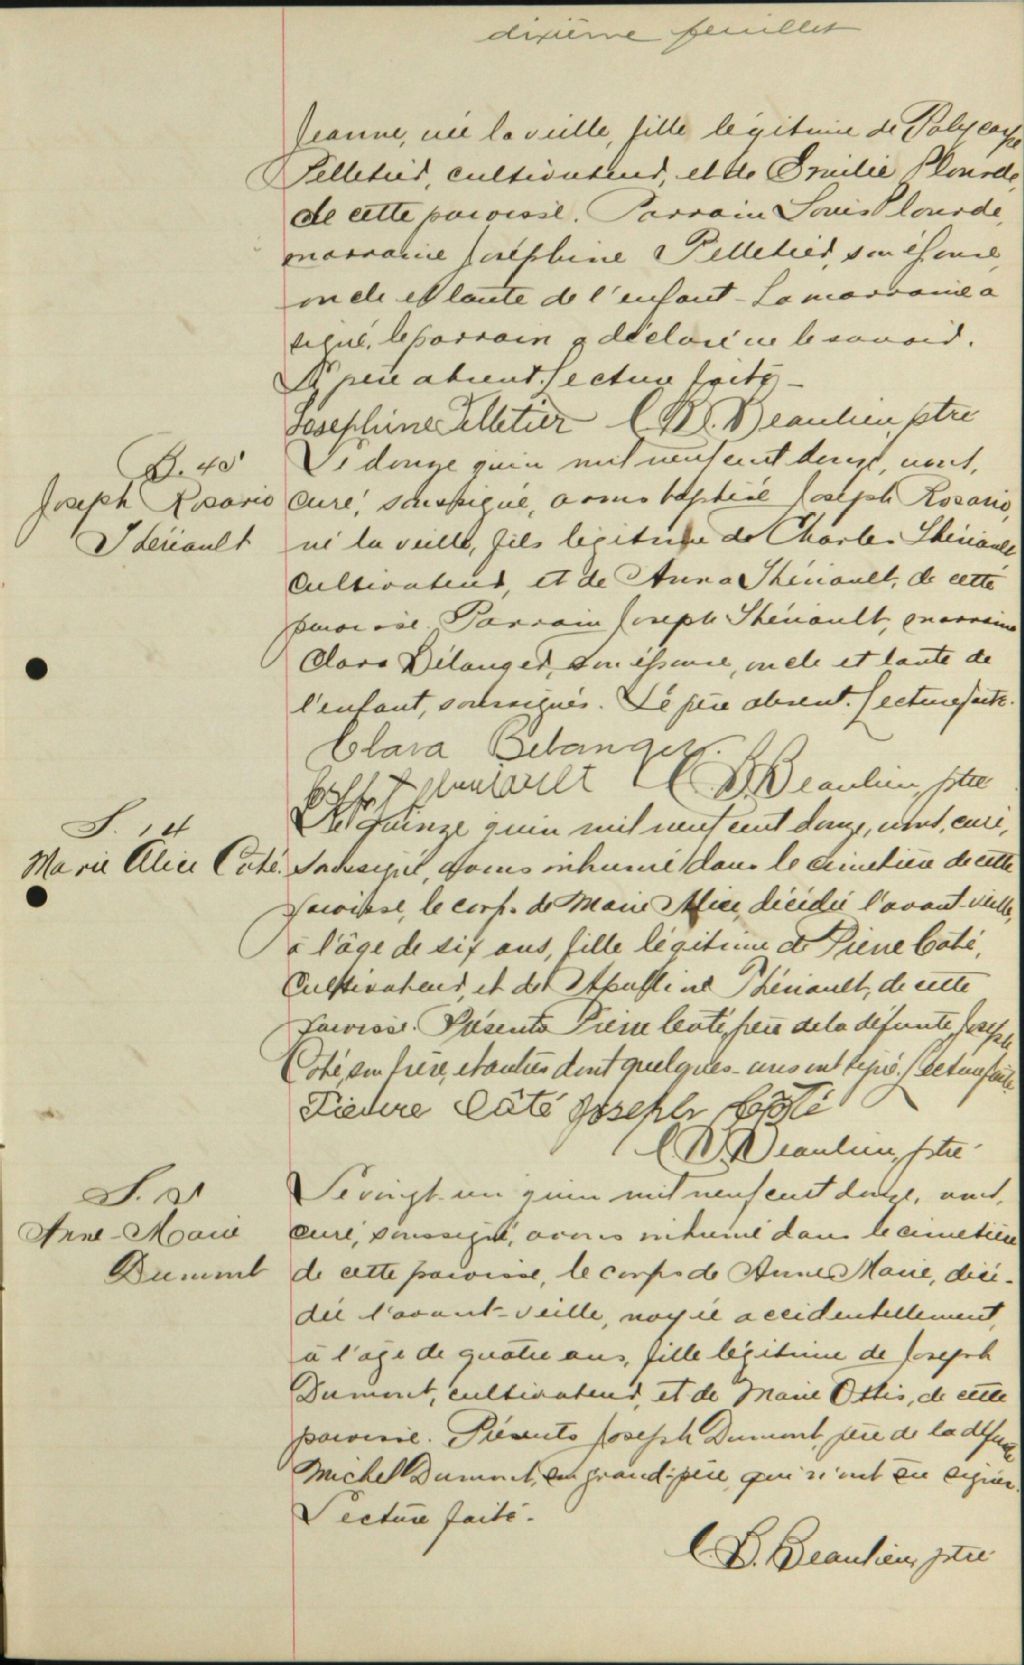 dixième feuillet
Jeanne, née la veille, fille légitime de Polycarpe
Pelletier, cultivateur, et de Emilie Plourde,
de cette paroisse. Parrain Louis Plourde,
marraine Joséphine Pelletier, son épouse,
oncle et tante de l'enfant - La marraine a
signé, le parrain a déclaré ne le savoir.
Le père absent. Lecture faite -
Josephine Pelletier C. B. Beaulieu, ptre
B. 45
Joseph Rosario
Thériault
Le douze juin mil neuf cent douze, nous,
curé, soussigné, avons baptisé Joseph Rosario,
né la veille, fils légitime de Charles Thériault,
cultivateur, et de Anna Thériault, de cette
paroisse. Parrain Joseph Thériault, marraine
Clara Bélanger, son épouse, oncle et tante de
l'enfant, soussignés. Le père absent. Lecture faite.
Clara Belanger.
C. B. Beaulieu, ptre
S. 14
Marie Alice Coté.
Le quinze juin mil neuf cent douze, nous, curé,
soussigné, avons inhumé dans le cimetière de cette
paroisse, le corps de Marie Alice, décédée l'avant-veille,
à l'âge de six ans, fille légitime de Pierre Coté,
cultivateur, et de Apolline Thériault, de cette
paroisse. Présents Pierre Coté, père de la défunte, Joseph
Coté, son frère, et autres dont quelques-uns ont signé. Lecture faite.
Pierre Côté Joseph Côté
C. B. Beaulieu, ptre
S.
Anne-Marie
Dumont
Le vingt-un juin mil neuf cent douze, nous,
curé, soussigné, avons inhumé dans le cimetière
de cette paroisse, le corps de Anne Marie, décé-
dée l'avant-veille, noyée accidentellement,
à l'âge de quatre ans, fille légitime de Joseph
Dumont, cultivateur, et de Marie Ottis, de cette
paroisse. Présents Joseph Dumont, père de la défunte,
Michel Dumont, son grand-père, qui n'ont su signer.
Lecture faite.
C. B. Beaulieu, ptre